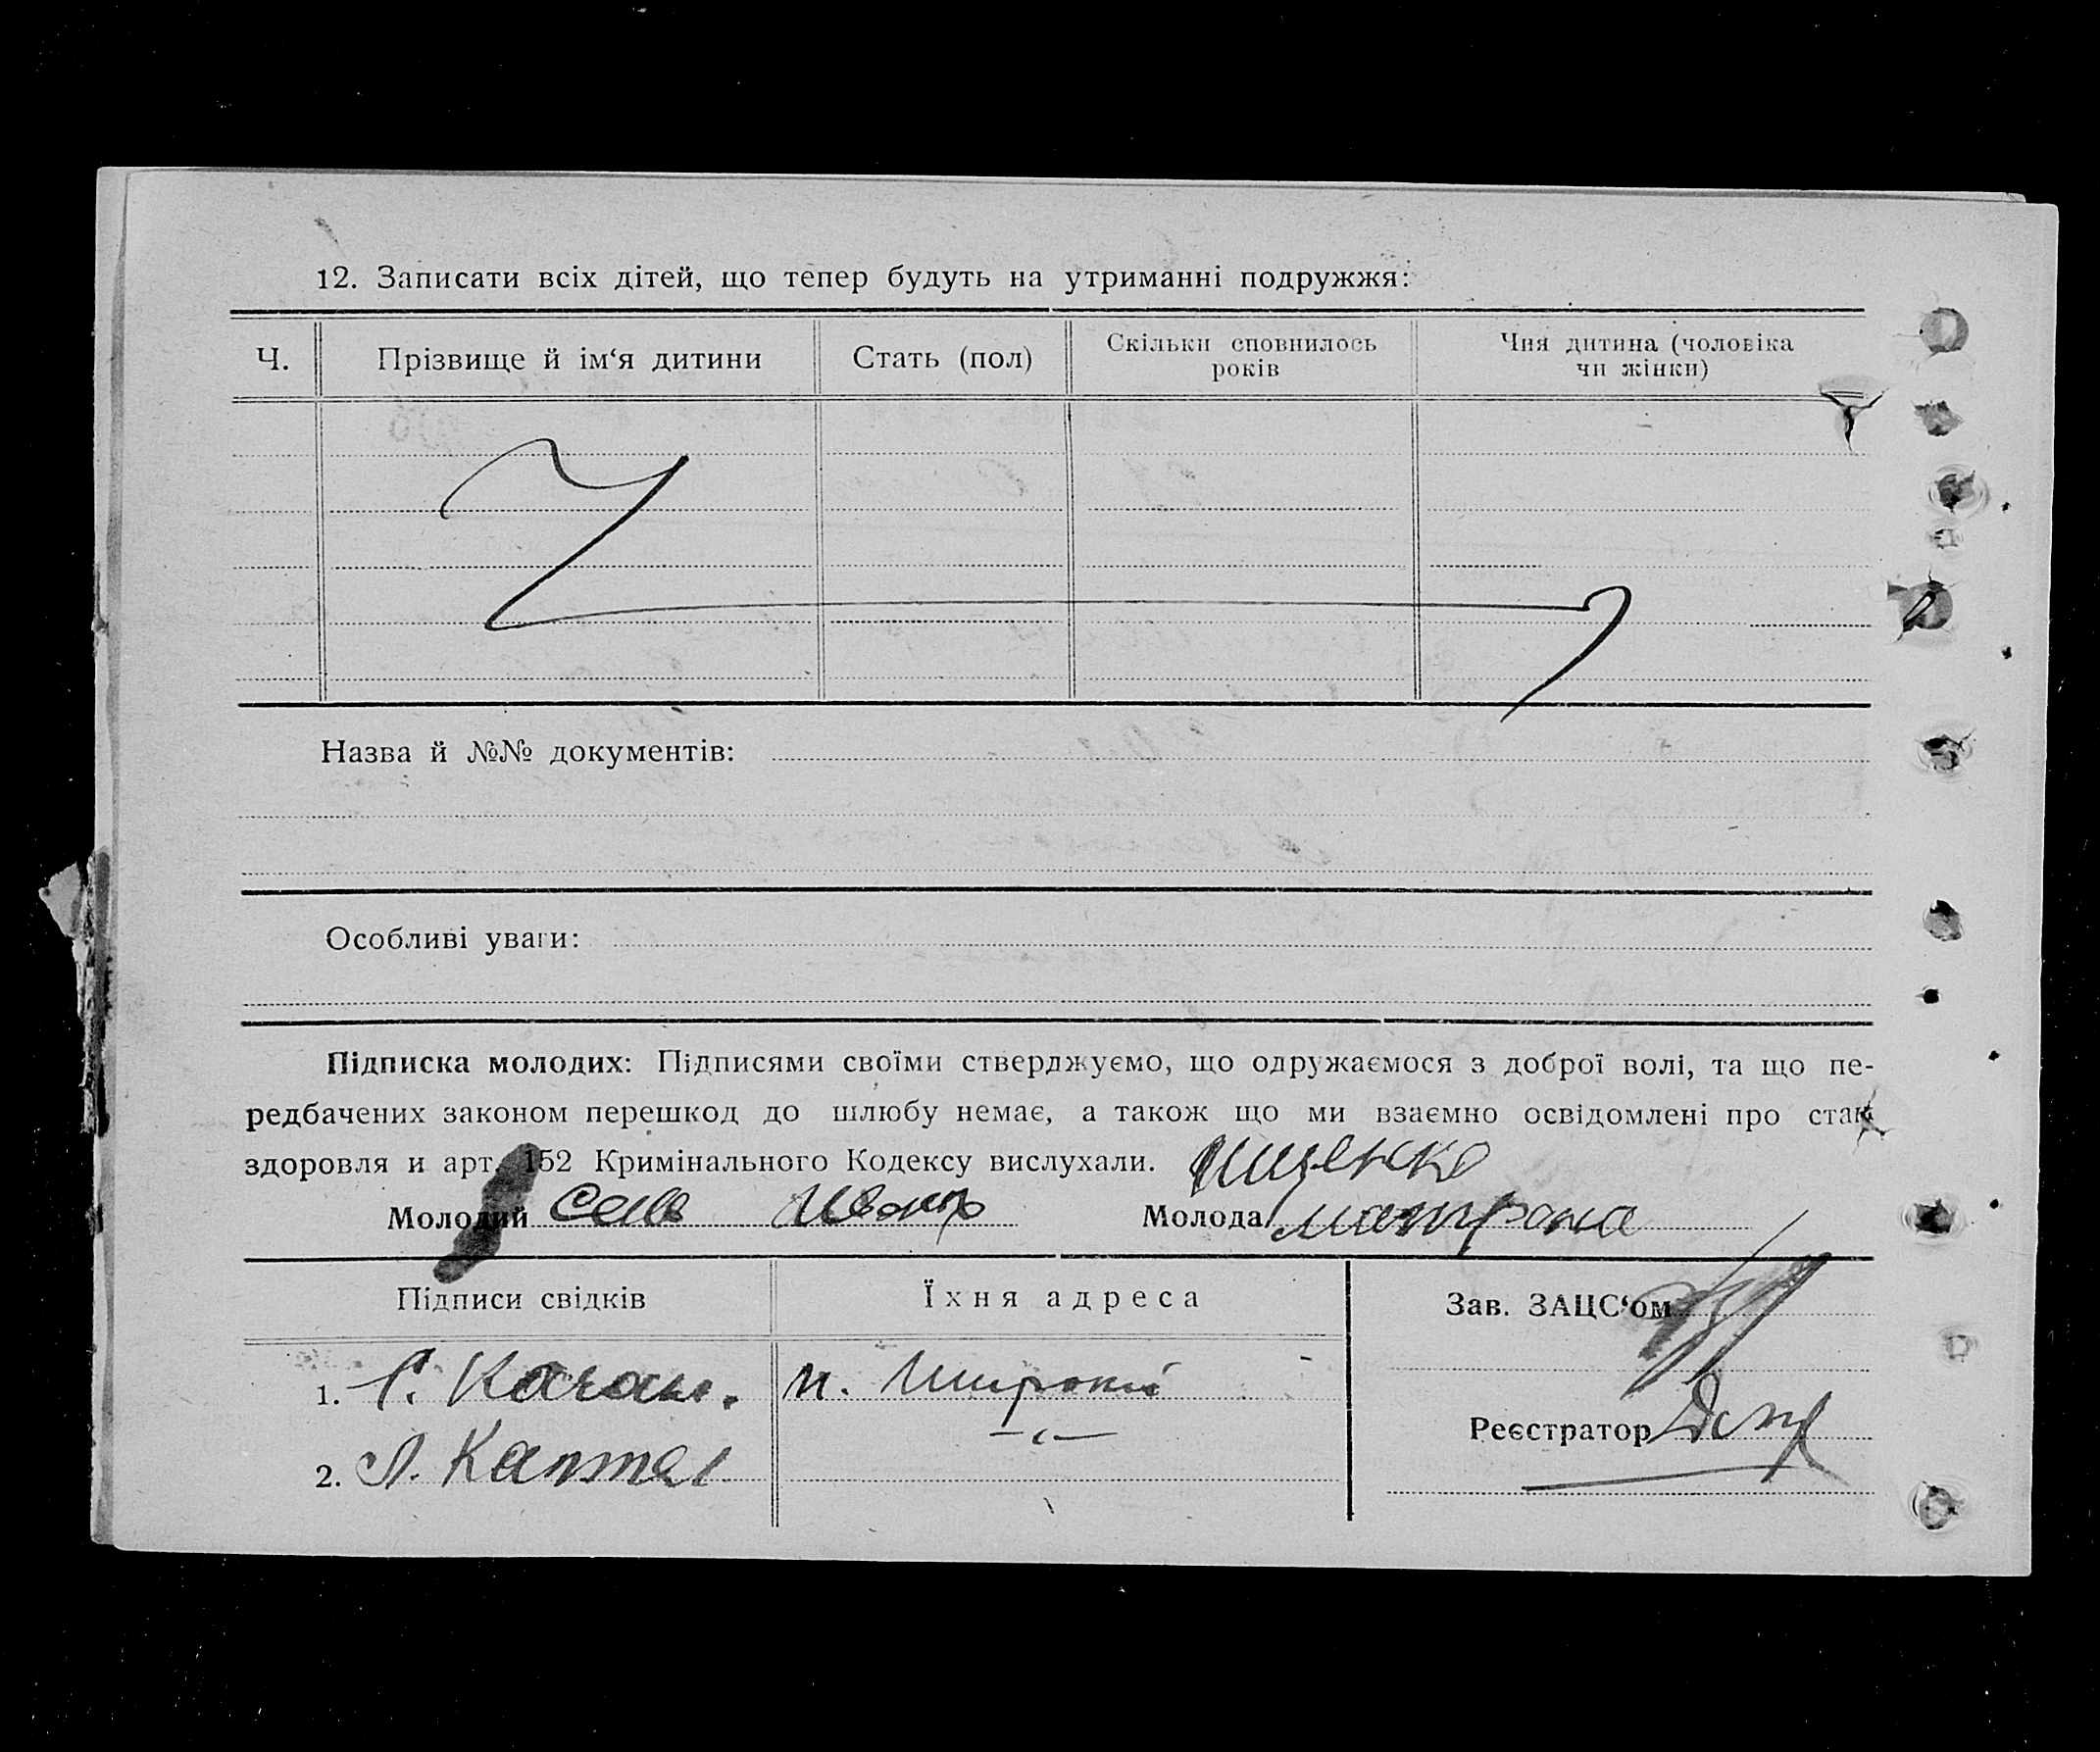 12. Записати всіх дітей, що тепер будуть на утриманні подружжя:
Ч. Прізвище й ім‘я дитини Стать (пол) Скільки сповнилось років Чия дитина (чоловіка чи жінки)
Назва й №№ документів:
Особливі уваги:
Підписка молодих: Підписями своїми стверджуємо, що одружаємося з доброї волі, та що пе-
редбачених законом перешкод до шлюбу немає, а також що ми взаємно освідомлені про стан
здоровля и арт. 152 Кримінального Кодексу вислухали.
Молодий Молода Матрона
Підписи свідків Їхня адреса Зав. ЗАЦС‘ом
1. Г. Каган. п. Широкий
Реєстратор
2. Л. Каптал